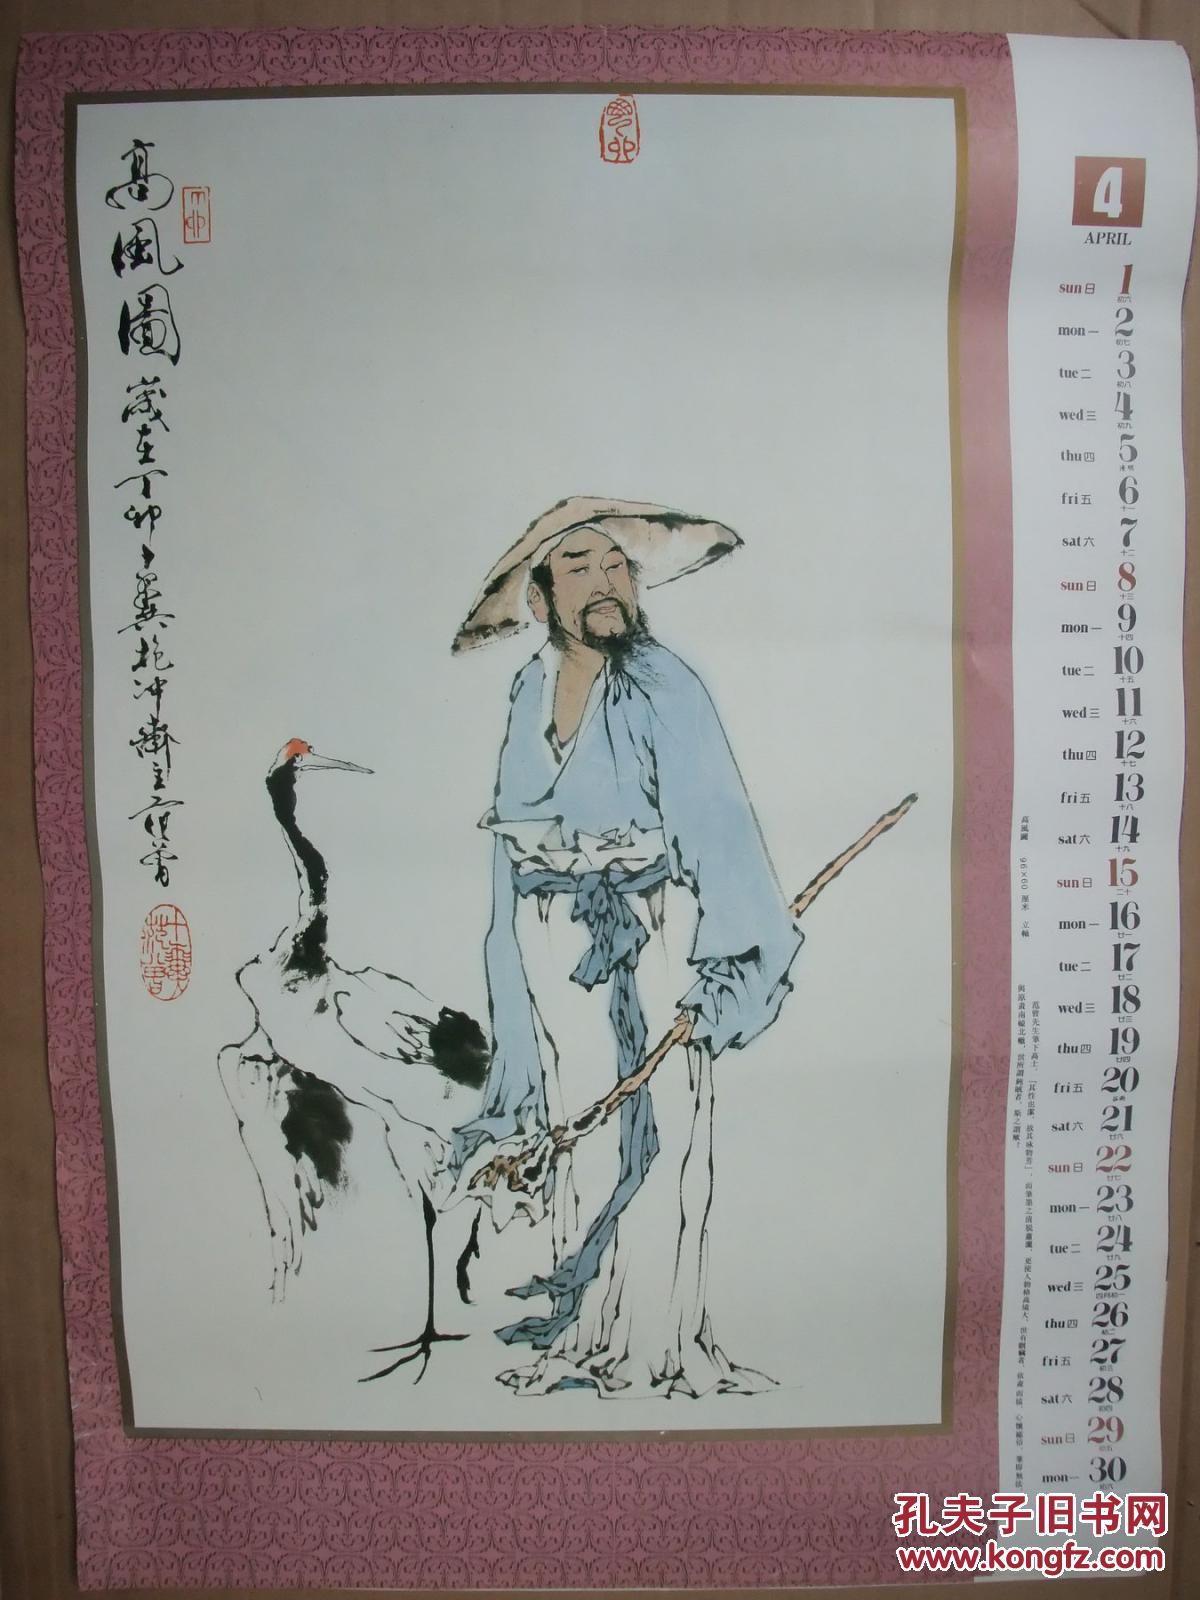 高風圖
歲在丁卯十翼抱冲齋主范曾
4
APRIL
sun 日 1 初六
mon 一 2 初七
tue 二 3 初八
wed 三 4 初九
thu 四 5 清明
fri 五 6 十一
sat 六 7 十二
sun 日 8 十三
mon 一 9 十四
tue 二 10 十五
wed 三 11 十六
thu 四 12 十七
fri 五 13 十八
sat 六 14 十九
sun 日 15 二十
mon 一 16 廿一
tue 二 17 廿二
wed 三 18 廿三
thu 四 19 廿四
fri 五 20 谷雨
sat 六 21 廿六
sun 日 22 廿七
mon 一 23 廿八
tue 二 24 廿九
wed 三 25 四月初一
thu 四 26 初二
fri 五 27 初三
sat 六 28 初四
sun 日 29 初五
mon 一 30 初六
高風圖 96×60 厘米 立軸
范曾先生筆下高士，「其性也潔，故其咏物芳」，而筆墨之清脱蕭灑，更使人物格高境大，世有剽竊者，依畫而描，心懷鄙俗，筆即無法，
與原畫南轅北轍，世所謂
孔夫子旧书网
www.kongfz.com